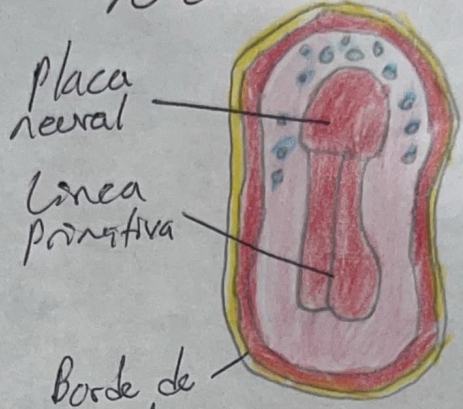 Placa
neural
Línea
Primitiva
Borde de